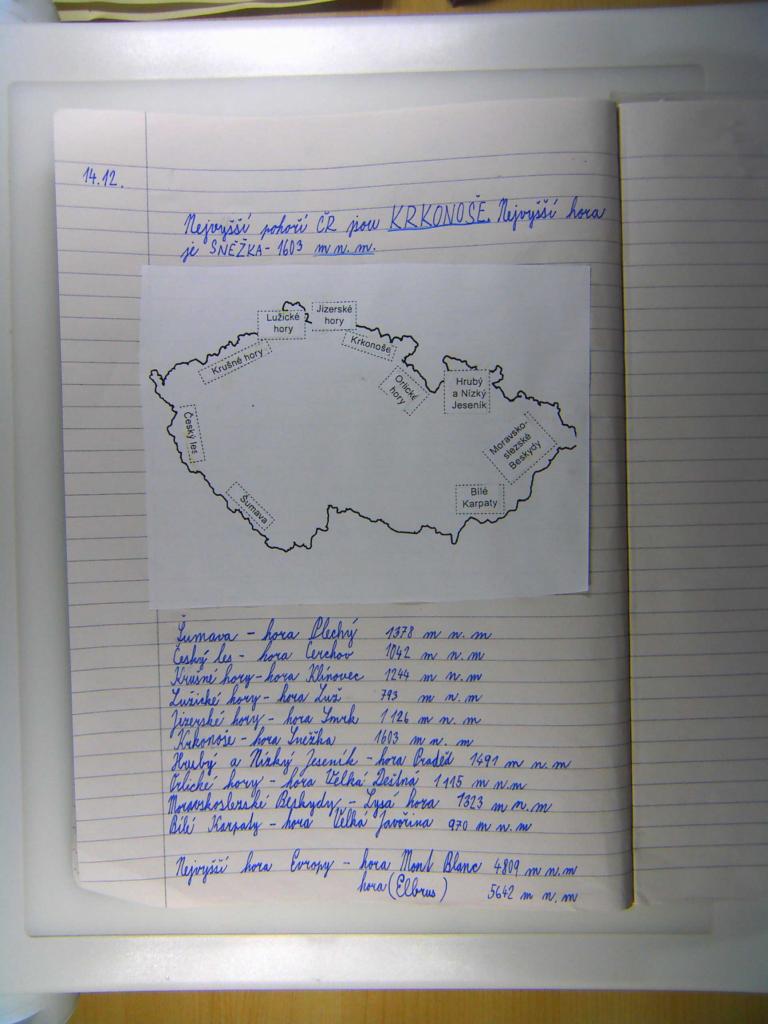 14.12.
Nejvyšší pohoří ČR jsou KRKONOŠE. Nejvyšší hora
je SNĚŽKA - 1603 m n. m.
Lužické
hory
Jizerské
hory
Krušné hory
Krkonoše
Orlické
hory
Hrubý
a Nízký
Jeseník
Český les
Moravsko-
slezské
Beskydy
Šumava
Bílé
Karpaty
Šumava - hora Plechý 1378 m n. m
Český les - hora Čerchov 1042 m n. m
Krušné hory - hora Klínovec 1244 m n. m
Lužické hory - hora Luž 793 m n. m
Jizerské hory - hora Smrk 1126 m n. m
Krkonoše - hora Sněžka 1603 m n. m
Hrubý a Nízký Jeseník - hora Praděd 1491 m n. m
Orlické hory - hora Velká Deštná 1115 m n. m
Moravskoslezské Beskydy - Lysá hora 1323 m n. m
Bílé Karpaty - hora Velká Javořina 970 m n. m
Nejvyšší hora Evropy - hora Mont Blanc 4809 m n. m
hora (Elbrus) 5642 m n. m